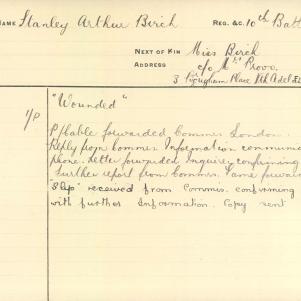 NAME Stanley Arthur Birch REG. &C. 10th Batt
NEXT OF KIN Miss Birch
ADDRESS c/o Mrs Provo.
3 Brougham Place Nth Adel
"Wounded"
forwarded Commr. London.
Reply from Commr. Information commun
phone. Letter forwarded Inquirer confirming
Further report from Commr. Same forwar
"Slip" received from Commis. confirming
with further Information. Copy sent